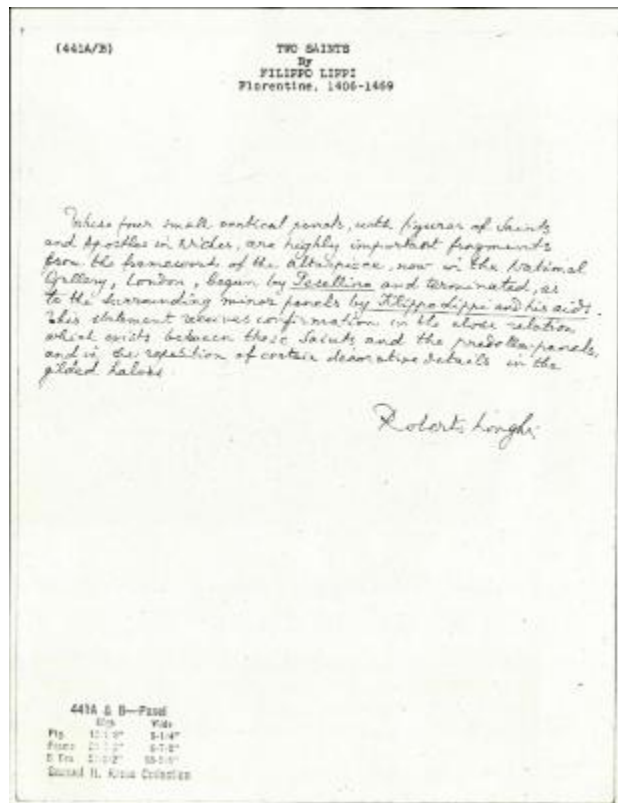 (441A/B)
TWO SAINTS
By
FILIPPO LIPPI
Florentine, 1406-1469
These four small vertical panels, with figures of Saints
and Apostles in niches, are highly important fragments
from the framework of the altarpiece, now in the National
Gallery, London, begun by Pesellino and terminated, as
to the surrounding minor panels by Filippo Lippi and his aids.
This statement receives confirmation in the close relation
which exists between these Saints and the predella-panels,
and in the repetition of certain decorative details in the
gilded halos.
Roberto Longhi
441A & B—Panel
High Wide
Ptg.
Frame
Samuel H. Kress Collection